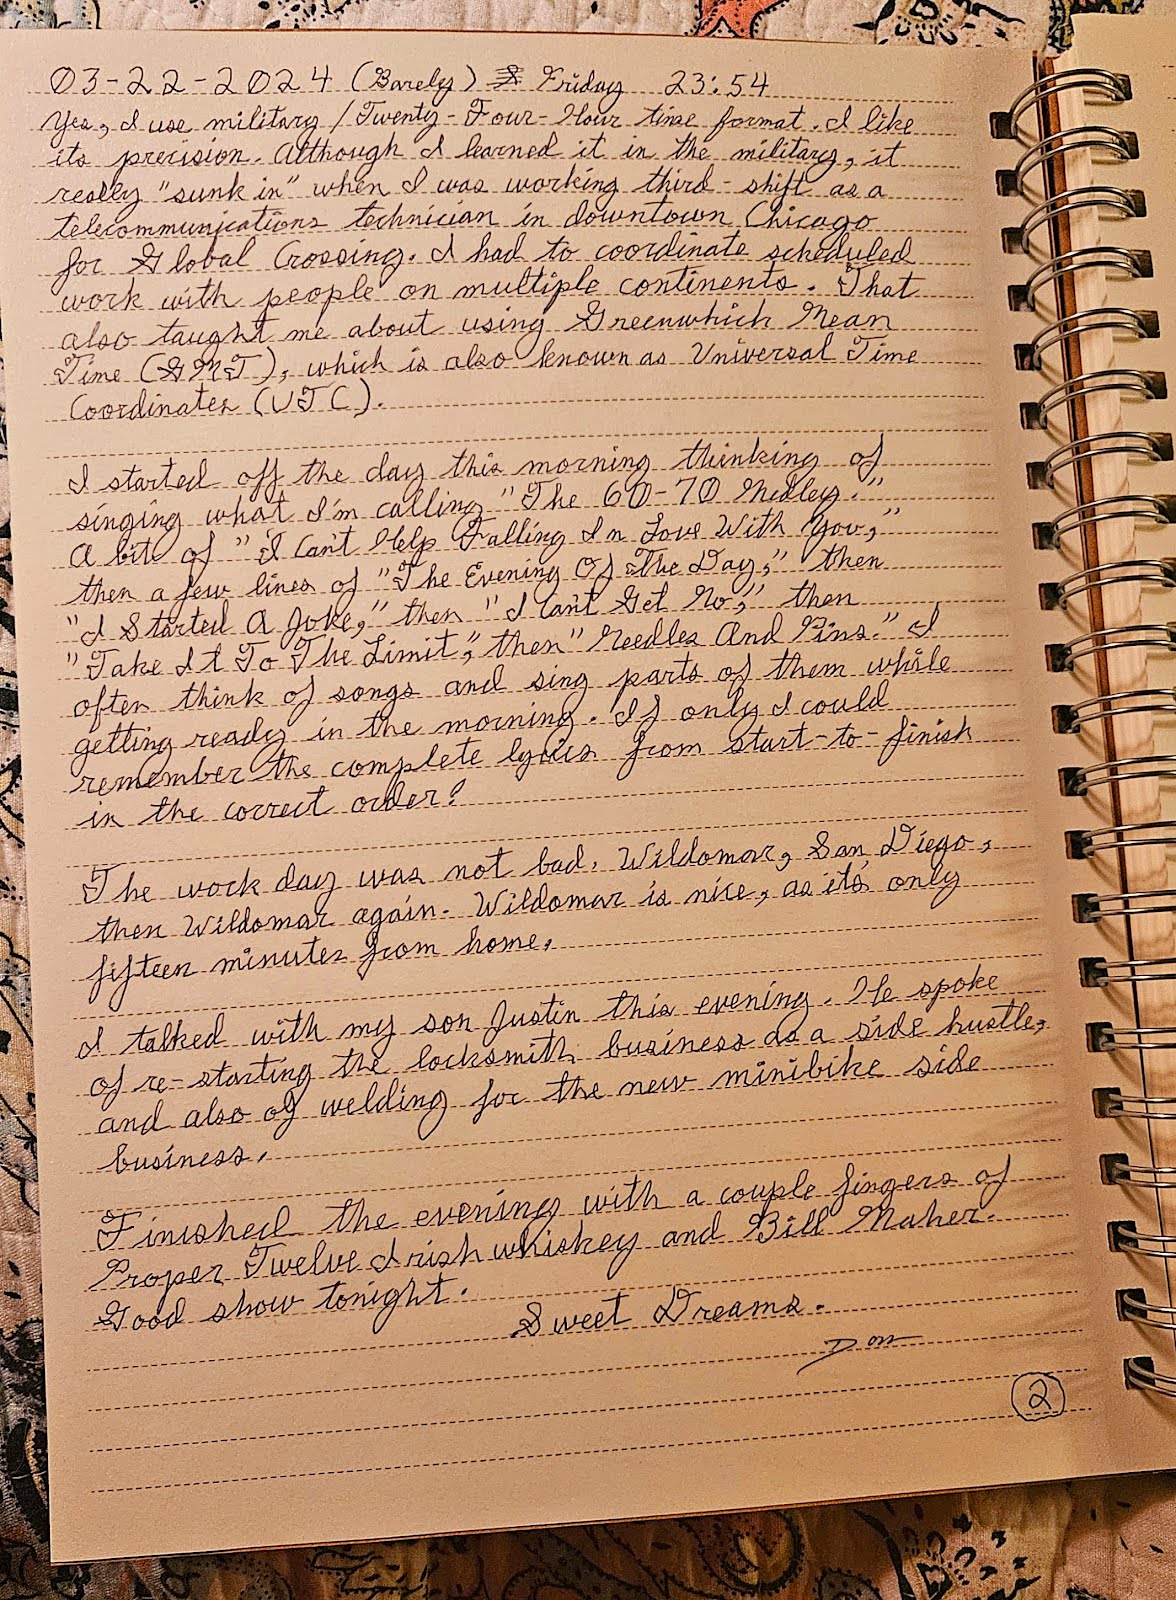 03-22-2024 (Barely) Friday 23:54
Yes, I use military / Twenty-Four-Hour time format. I like
its precision. Although I learned it in the military, it
really "sunk in" when I was working third-shift as a
telecommunications technician in downtown Chicago
for Global Crossing. I had to coordinate scheduled
work with people on multiple continents. That
also taught me about using Greenwhich Mean
Time (GMT), which is also known as Universal Time
Coordinates (UTC).
I started off the day this morning thinking of
singing what I'm calling "The 60-70 Medley."
A bit of "I Can't Help Falling In Love With You,"
then a few lines of "The Evening Of The Day," then
"I Started A Joke," then "I Can't Get No," then
"Take It To The Limit," then "Needles And Pins." I
often think of songs and sing parts of them while
getting ready in the morning. If only I could
remember the complete lyrics from start-to-finish
in the correct order?
The work day was not bad. Wildomar, San Diego,
then Wildomar again. Wildomar is nice, as it's only
fifteen minutes from home.
I talked with my son Justin this evening. He spoke
of re-starting the locksmith business as a side hustle,
and also of welding for the new minibike side
business.
Finished the evening with a couple fingers of
Proper Twelve Irish whiskey and Bill Maher.
Good show tonight.
Sweet Dreams.
Don
2